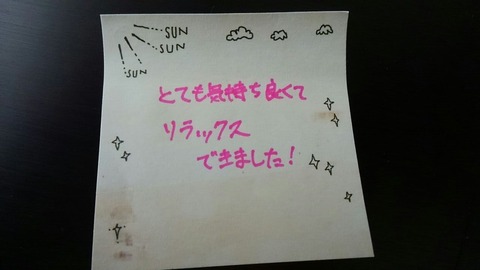 SUN
SUN
SUN
とても気持ち良くて
リラックス
できました!